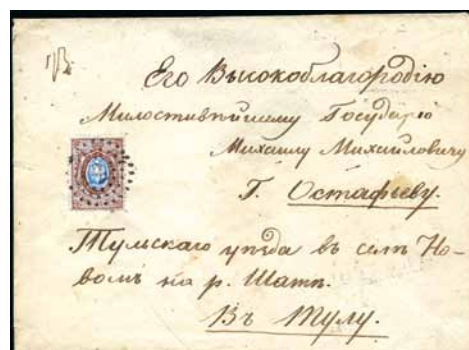 Его Высокоблагородію
Милостивѣйшему Государю
Михаилу Михайловичу
Г. Остафьеву.
Тульскаго уѣзда въ селѣ Но-
вомъ на р. Шатѣ.
Въ Тулу.